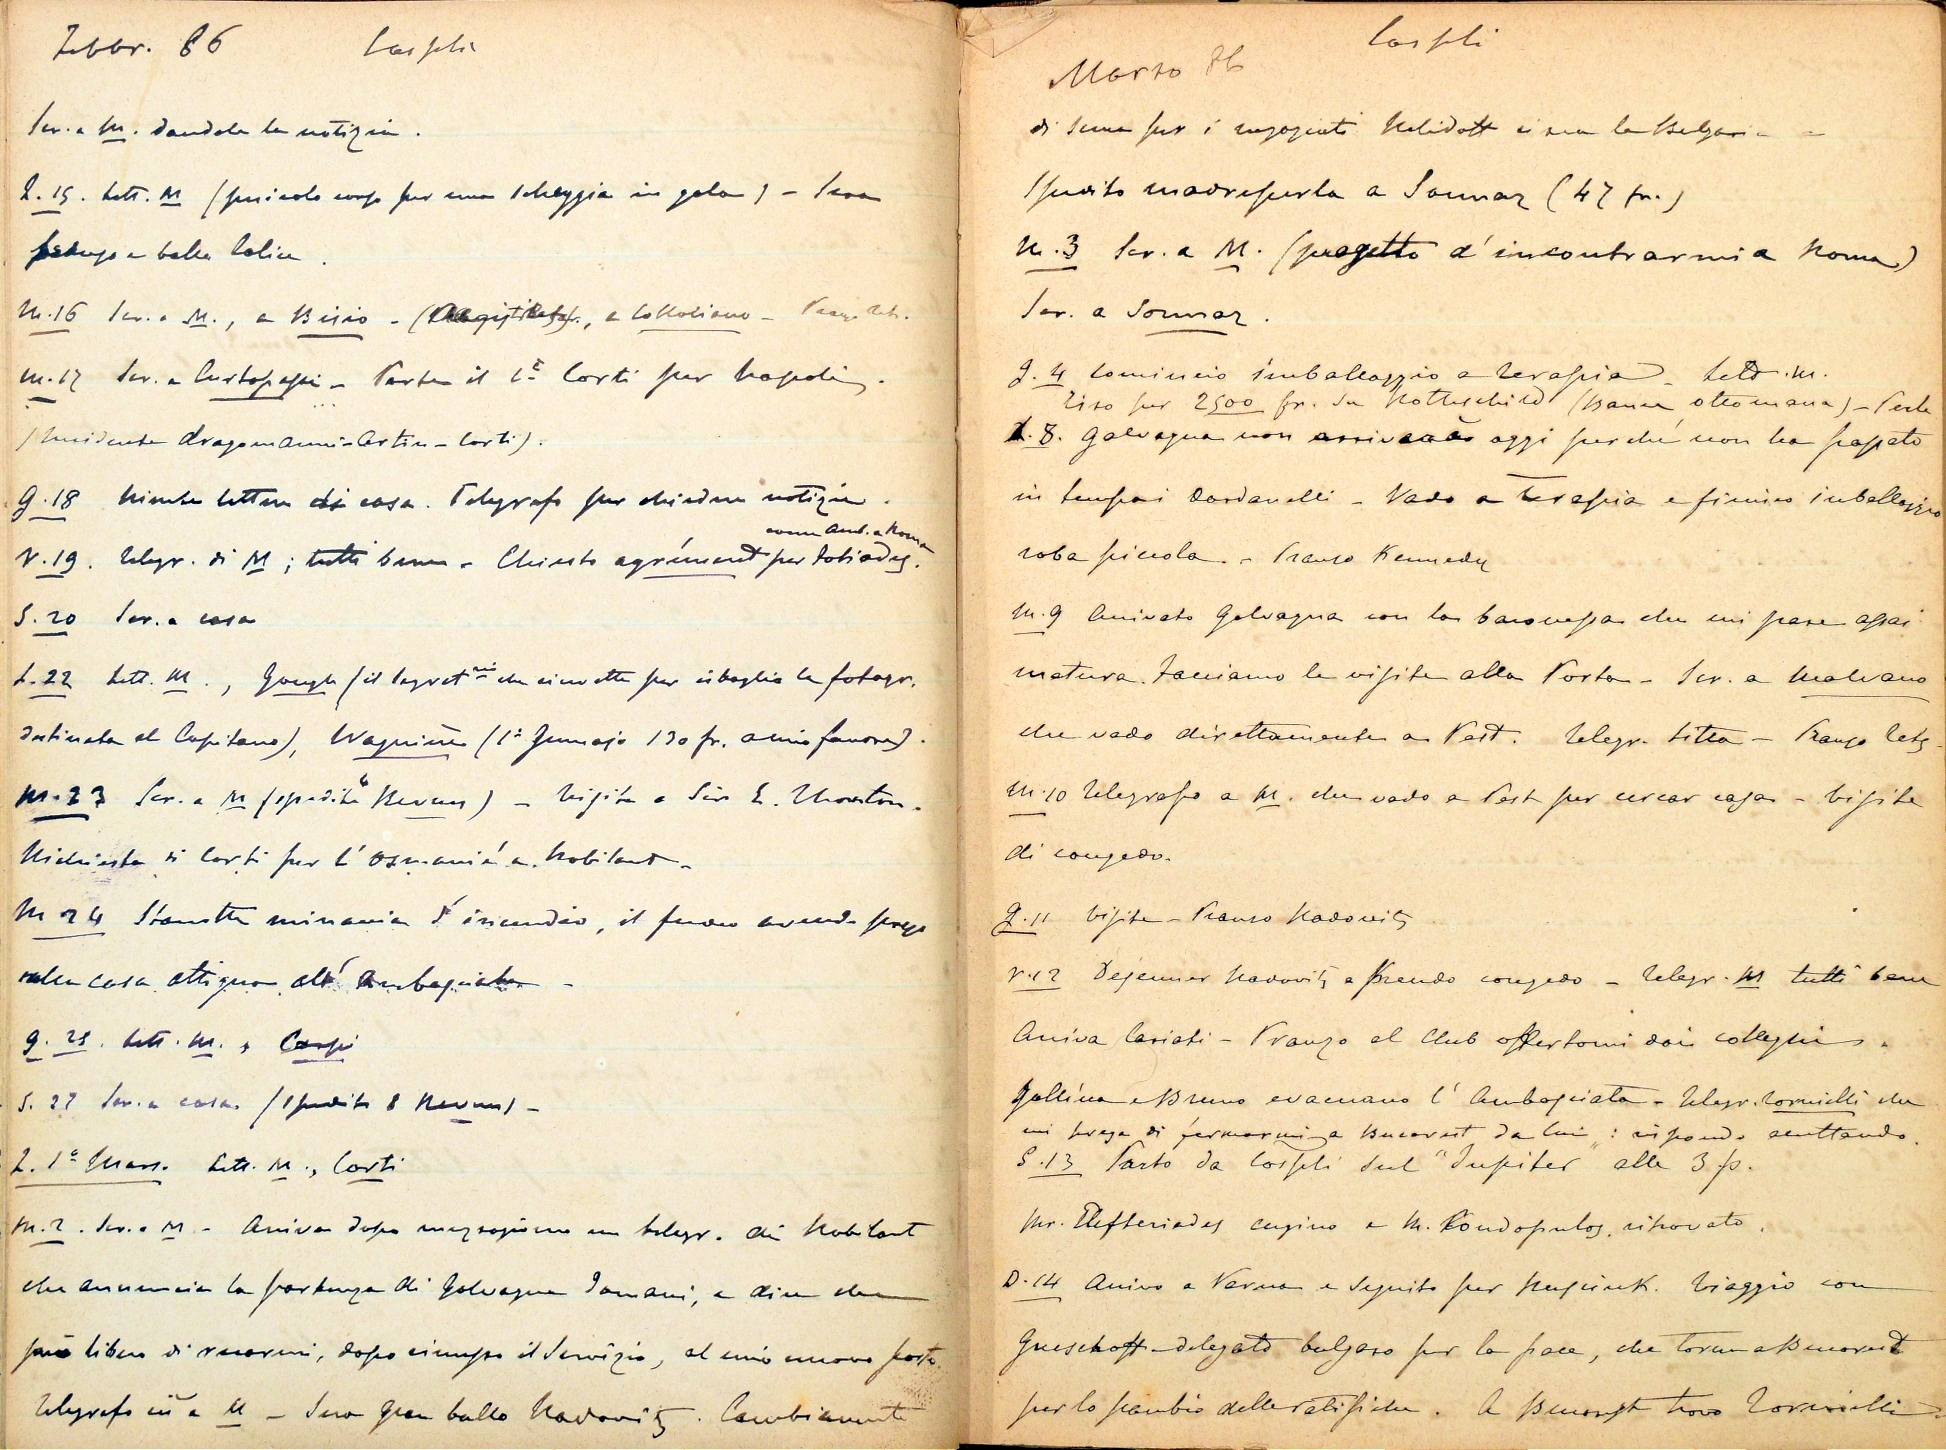 Febbr. 86 Cospli
Scr. a M. dandole la notizia.
L. 15. Lett. M (pericolo corso per una scheggia in gola) – Sera
pranzo e ballo
M. 16 Scr. a M., a Bisio – a
M. 17 Scr. a Curtopassi – Parte il Cte Corti per Napoli.
(Incidente dragomanni – Artin – Corti).
G. 18 Niente lettere di casa. Telegrafo per chiedere notizie.
come Amb. a Roma
V. 19. Telegr. di M; tutti bene – Chiesto agrément per Fotiades.
S. 20 Scr. a casa
L. 22 Lett. M., Gough (il segret.rio che ricevette per isbaglio la fotogr.
destinata al Capitano), Wagnière (1° Gennajo 130 fr. a mio favore).
M. 23 Scr. a M (spedita 6 Revues) – Visita a Sir E. Thornton.
Richiesta di Corti per l'Osmanié a Robilant –
M 24 Stanotte minaccia d'incendio, il fuoco avendo preso
nella casa attigua all'Ambasciata –
G. 25. Lett. M., Carpi
S. 27 Scr. a casa (spedite 8 Revues) –
L. 1° Marzo Lett. M., Corti
M. 2. Scr. a M. – Arriva dopo mezzogiorno un telegr. di Robilant
che annuncia la partenza di Galvagna domani, e dice che
può libero di recarmi, dopo rimesso il servizio, al mio nuovo posto.
Telegrafo ciò a M – Sera gran ballo Radowitz. Cambiamento
Cospli
Marzo 86
di scena per i negoziati Nelidoff circa la Bulgaria –
Spedito madreperla a Sonnaz (47 fr.)
M. 3 Scr. a M. (progetto d'incontrarmi a Roma)
Scr. a Sonnaz.
G. 4 Comincio imballaggio a Terapia – Lett. M.
Tiro per 2500 fr. su Rothschild (Banca ottomana) –
L. 8. Galvagna non arriverà oggi perché non ha passato
in tempo i Dardanelli – Vado a Terapia e finisco imballaggio
roba piccola. – Pranzo Kennedy
M. 9 Arrivato Galvagna con la baronessa che mi pare assai
matura. Facciamo le visite alla Porta – Scr. a Malvano
che vado direttamente a Pest. Telegr. Litta – Pranzo
M. 10 Telegrafo a M. che vado a Pest per cercar casa – Visite
di congedo.
G. 11 Visite – Pranzo Radowitz
V. 12 Dejeuner Radowitz e prendo congedo – Telegr. M tutti bene
Arriva Cariati – Pranzo al Club offertomi dai colleghi.
Gallina e Bruno evacuano l'Ambasciata – Telegr. Tornielli che
mi prega di fermarmi a Bucarest da lui: rispondo accettando.
S. 13 Parto da Cospli sul "Jupiter" alle 3 p.
Mr. Elefteriades cugino a M. Condopulos, ritrovato.
D. 14 Arrivo a Varna e seguito per Rusciuk. Viaggio con
Gueschoff – delegato bulgaro per la pace, che torna a Bucarest
per lo scambio delle ratifiche. A Bucarest trovo Tornielli